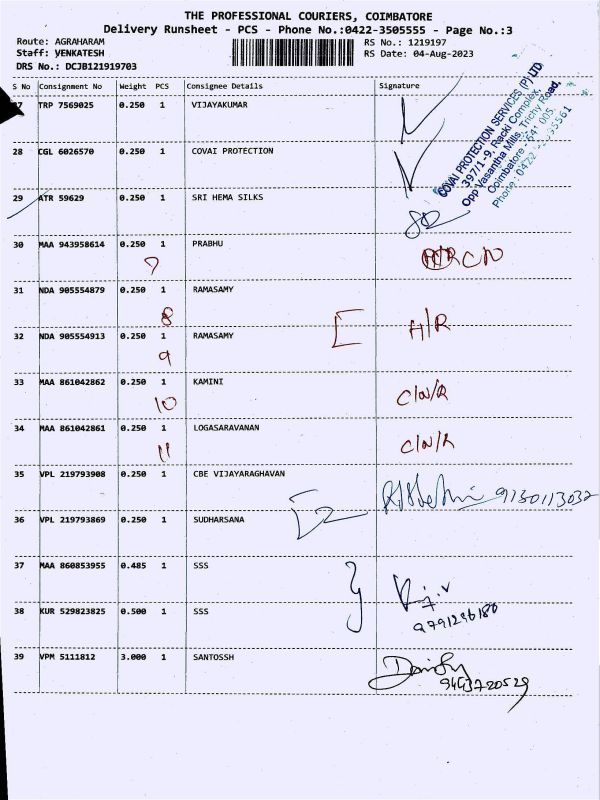 THE PROFESSIONAL COURIERS, COIMBATORE
Delivery Runsheet - PCS - Phone No.:0422-3505555 - Page No.:3
Route: AGRAHARAM
RS No.: 1219197
Staff: VENKATESH
RS Date: 04-Aug-2023
DRS No.: DCJB121919703
S No Consignment No Weight PCS Consignee Details Signature
TRP 7569025 0.250 1 VIJAYAKUMAR
COVAI PROTECTION SERVICES (P) LTD
397/1-9, Racki Complex,
Opp Vasantha Mills, Trichy Road,
Coimbatore - 641 005.
Phone: 0422
28 CGL 6026570 0.250 1 COVAI PROTECTION
29 ATR 59629 0.250 1 SRI HEMA SILKS
30 MAA 943958614 0.250 1 PRABHU
7 CN
31 NDA 905554879 0.250 1 RAMASAMY
8
32 NDA 905554913 0.250 1 RAMASAMY A/R
9
33 MAA 861042862 0.250 1 KAMINI
10 C/N/R
34 MAA 861042861 0.250 1 LOGASARAVANAN
11 C/N/R
35 VPL 219793908 0.250 1 CBE VIJAYARAGHAVAN
9150113032
36 VPL 219793869 0.250 1 SUDHARSANA
37 MAA 860853955 0.485 1 SSS
38 KUR 529823825 0.500 1 SSS
9791296180
39 VPM 5111812 3.000 1 SANTOSSH
9443720529